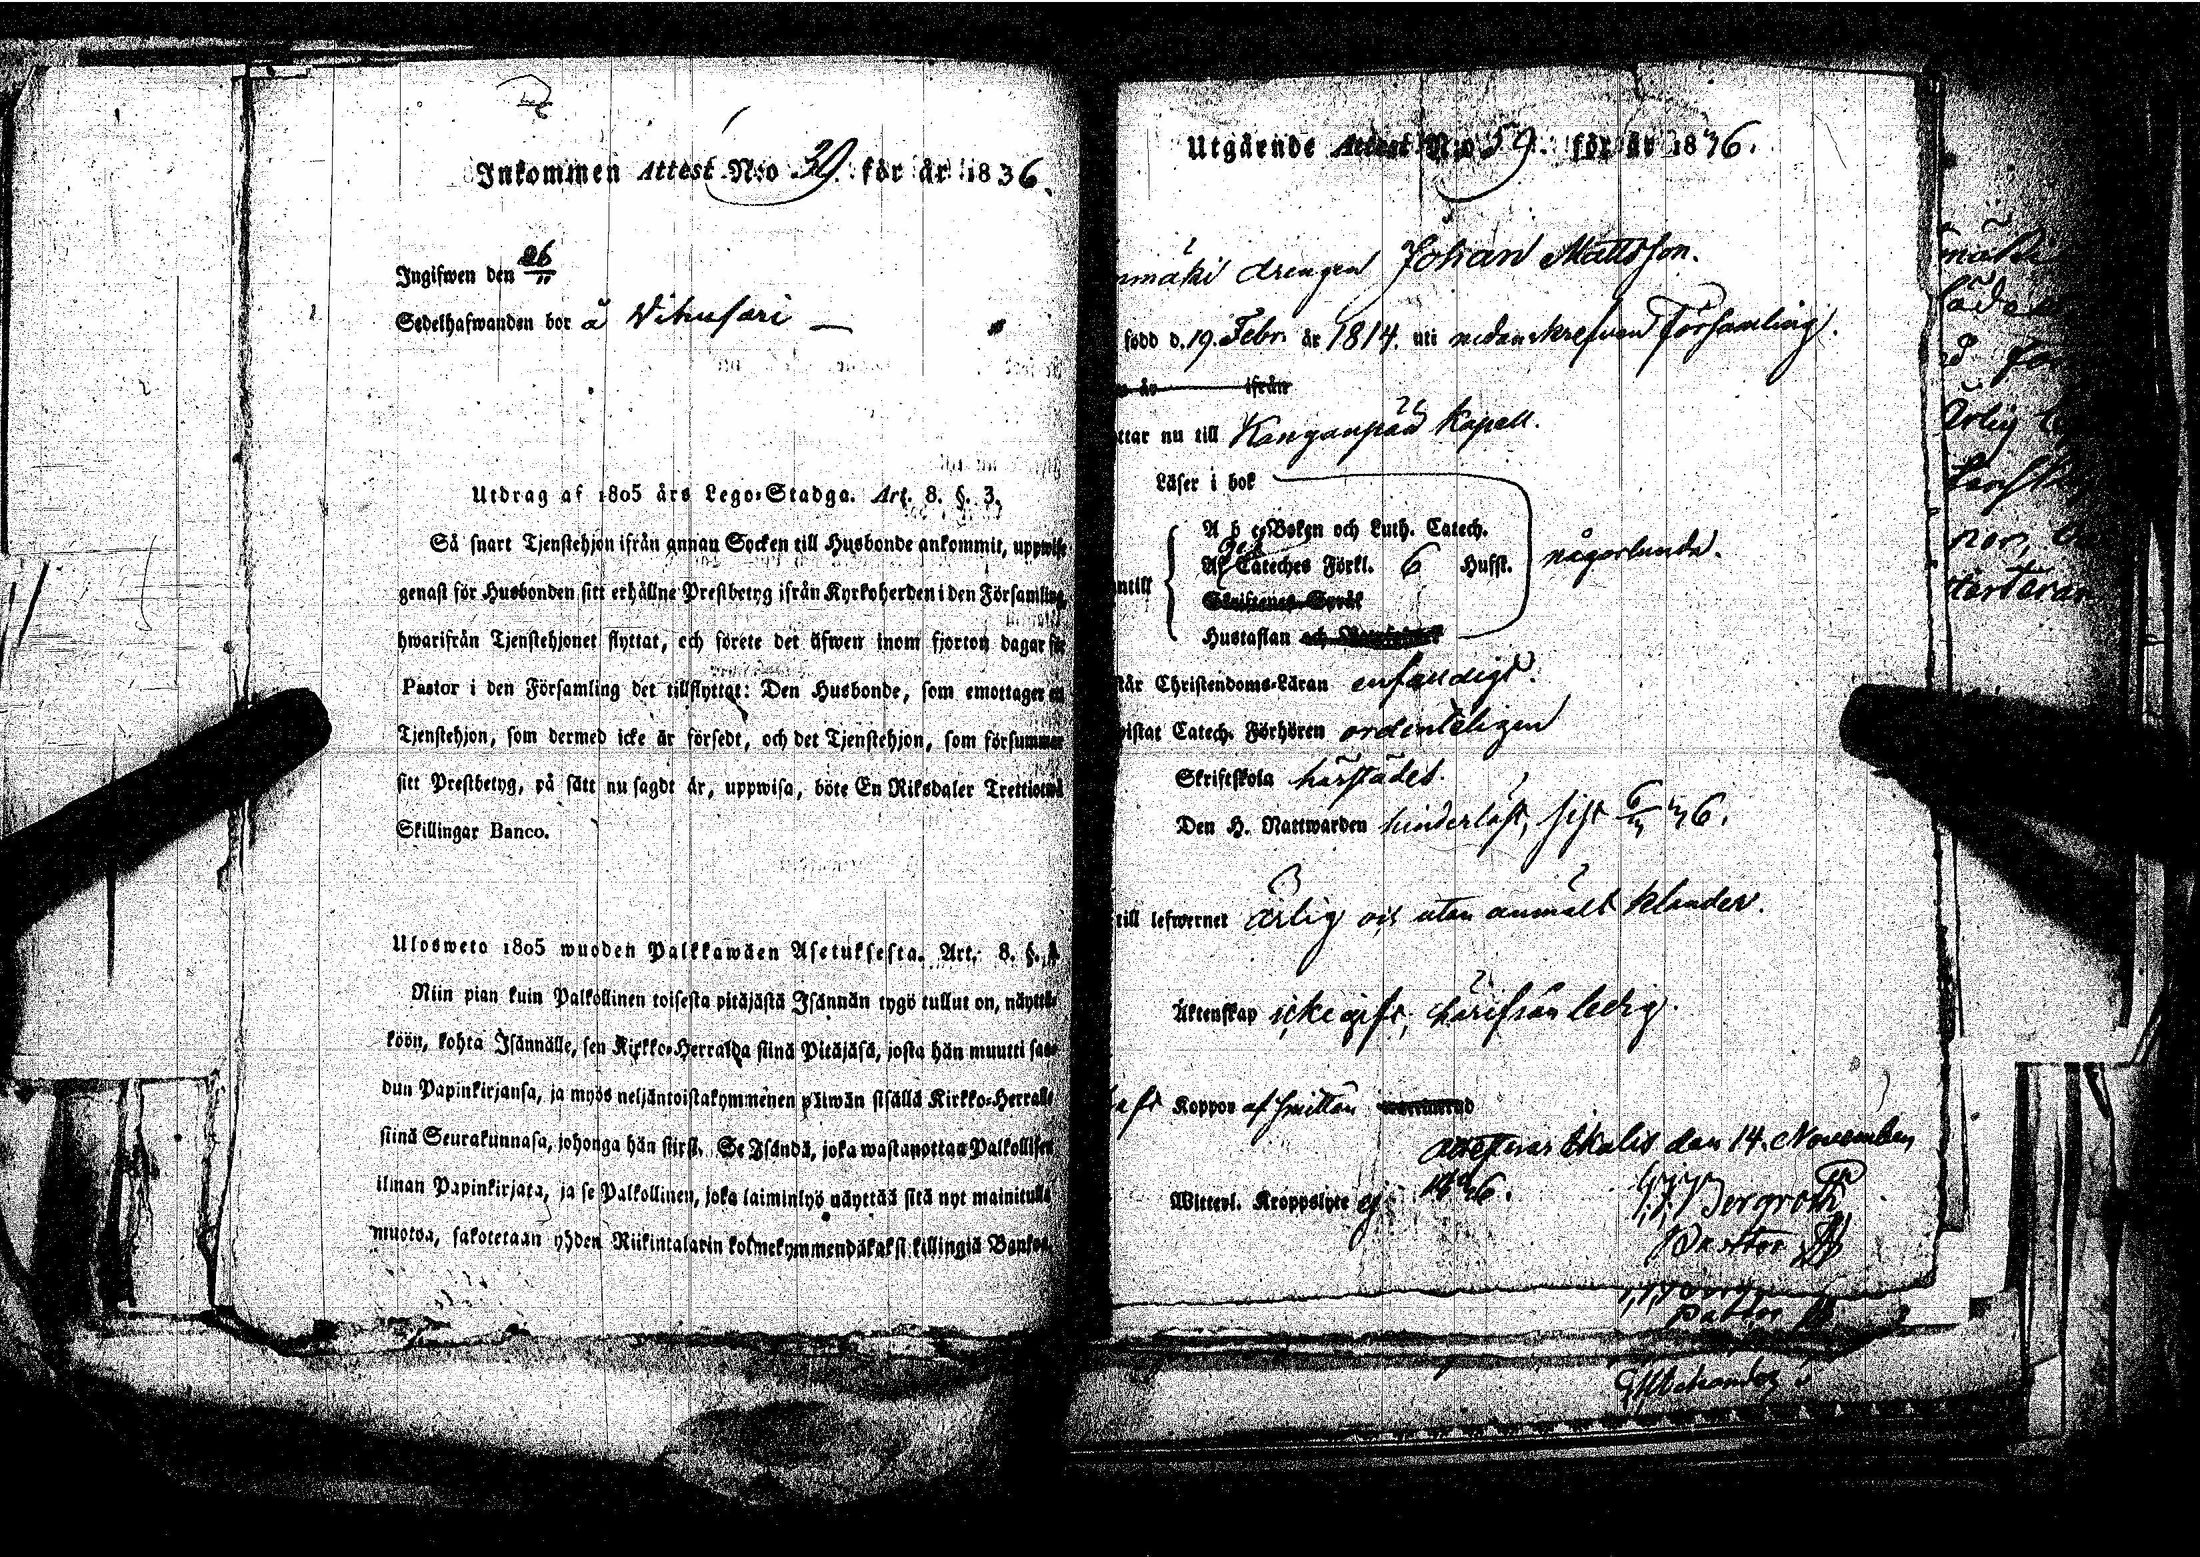 Inkommen Attest N:o 39. för år 1836.
Ingifwen den 26/11
Sedelhafwanden bor å Vihusari
Utdrag af 1805 års Lego-Stadga. Art. 8. §. 3.
Så snart Tjenstehjon ifrån annan Socken till Husbonde ankommit, uppwise
genast för Husbonden sitt erhållne Prestbetyg ifrån Kyrkoherden i den Församling,
hwarifrån Tjenstehjonet flyttat, och förete det äfwen inom fjorton dagar för
Pastor i den Församling det tillflyttat: Den Husbonde, som emottager en
Tjenstehjon, som dermed icke är försedt, och det Tjenstehjon, som försummar
sitt Prestbetyg, på sätt nu sagdt är, uppwisa, böte En Riksdaler Trettiotwå
Skillingar Banco.
Ulosweto 1805 wuoden Palkkawäen Asetuksesta. Art. 8. §.
Niin pian kuin Palkollinen toisesta pitäjästä Isännän tygö tullut on, näyttä-
köön, kohta Isännälle, sen Kirkko-Herralda siinä Pitäjäsä, josta hän muutti saa-
dun Papinkirjansa, ja myös neljäntoistakymmenen päiwän sisällä Kirkko-Herralle
siinä Seurakunnasa, johonga hän siirsi. Se Isändä, joka wastanottaa Palkollisen
ilman Papinkirjata, ja se Palkollinen, joka laiminlyö näyttää sitä nyt mainitulla
muotoa, sakotetaan yhden Riikintalarin kolmekymmendäkaksi killingiä Bankos.
Utgående Attest N:o 59. för år 1836.
mäki drengen Johan Mattsson.
född d. 19. Febr. år 1814. uti nedanskrefven Församling.
år ifrån
ttar nu till Kanganpää Kapell.
Läser i bok
A b c-Boken och Luth. Catech.
Cateches Förkl. 6 Hufst. någorlunda.
ntill Skriftenes Språk
Hustaflan och
står Christendoms-Läran enfaldigt.
vistat Catech. Förhören ordenteligen
Skriftskola härstädes.
Den H. Nattwarden hinderlöst, sist 6/11 36.
till lefwernet ärlig och utan anmält klander.
Äktenskap icke gift, härifrån ledig.
haft Koppor af smittan
attesteras Ikalis den 14. November
Witterl. Kroppslyte ej 1836.
Bergroth
Pastor
Pastor